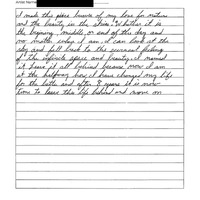 Artist Name
I made this piece because of my love for nature
and the beauty in the skies. Whether it is
the beginning, middle, or end of the day and
no matter where I am, I can look at the
sky and fall back to this surreal feeling
of the infinite space and beauty. I named
it leave it all behind because now I am
at the halfway how I have changed my life
for the better and after 8 years it is now
time to leave this life behind and move on